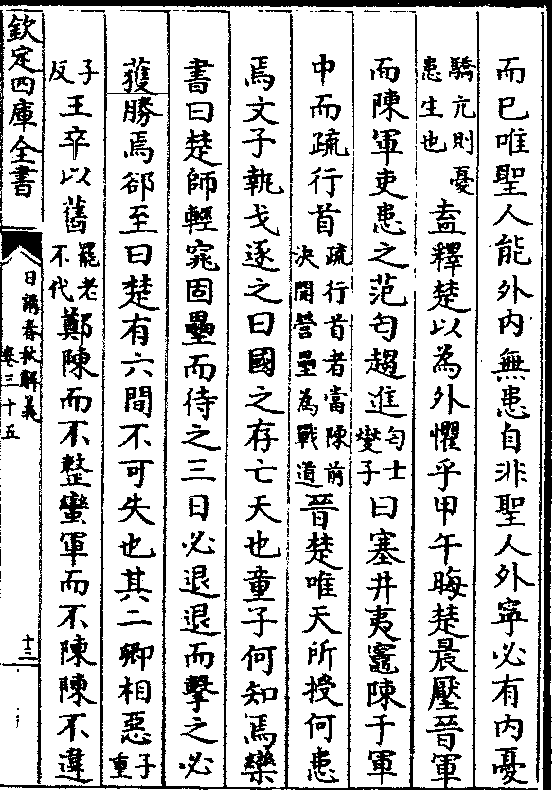 而已唯聖人能外内無患自非聖人外寧必有内憂
驕亢則憂患生也盍釋楚以為外懼乎甲午晦楚晨壓晉軍
而陳軍吏患之范匄趨進匄士燮子曰塞井夷竈陳于軍
中而疏行首疏行首者當陳前決開營壘為戰道晉楚唯天所授何患
焉文子執戈逐之曰國之存亡天也童子何知焉欒
書曰楚師輕窕固壘而待之三日必退退而擊之必
獲勝焉郤至曰楚有六間不可失也其二卿相惡子重
子反王卒以舊罷老不代鄭陳而不整蠻軍而不陳陳不違
欽定四庫全書
日講春秋解義
卷三十五
十二